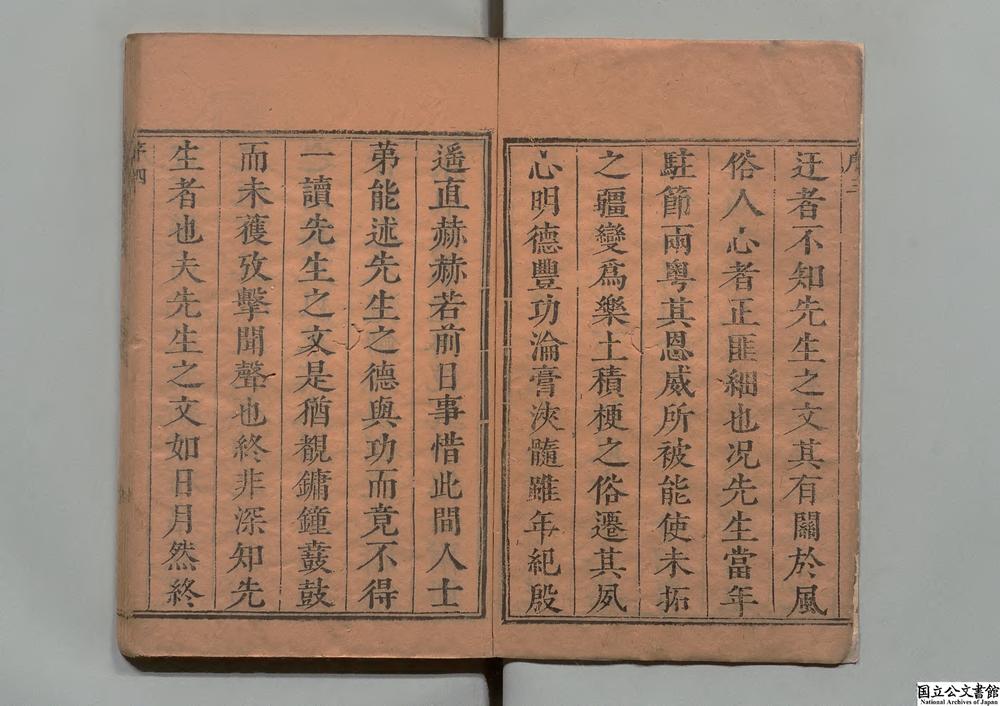 序三
迂者不知先生之文其有關於風
俗人心者正匪細也况先生當年
駐節兩粤其恩威所被能使未拓
之疆變爲樂土積梗之俗遷其夙
心明德豐功淪膏浹髓雖年紀殷
遥直赫赫若前日事惜此間人士
第能述先生之德與功而竟不得
一讀先生之文是猶覩鏞鐘鼖鼓
而未獲攷擊聞聲也終非深知先
生者也夫先生之文如日月然終
序四
国立公文書館
National Archives of Japan